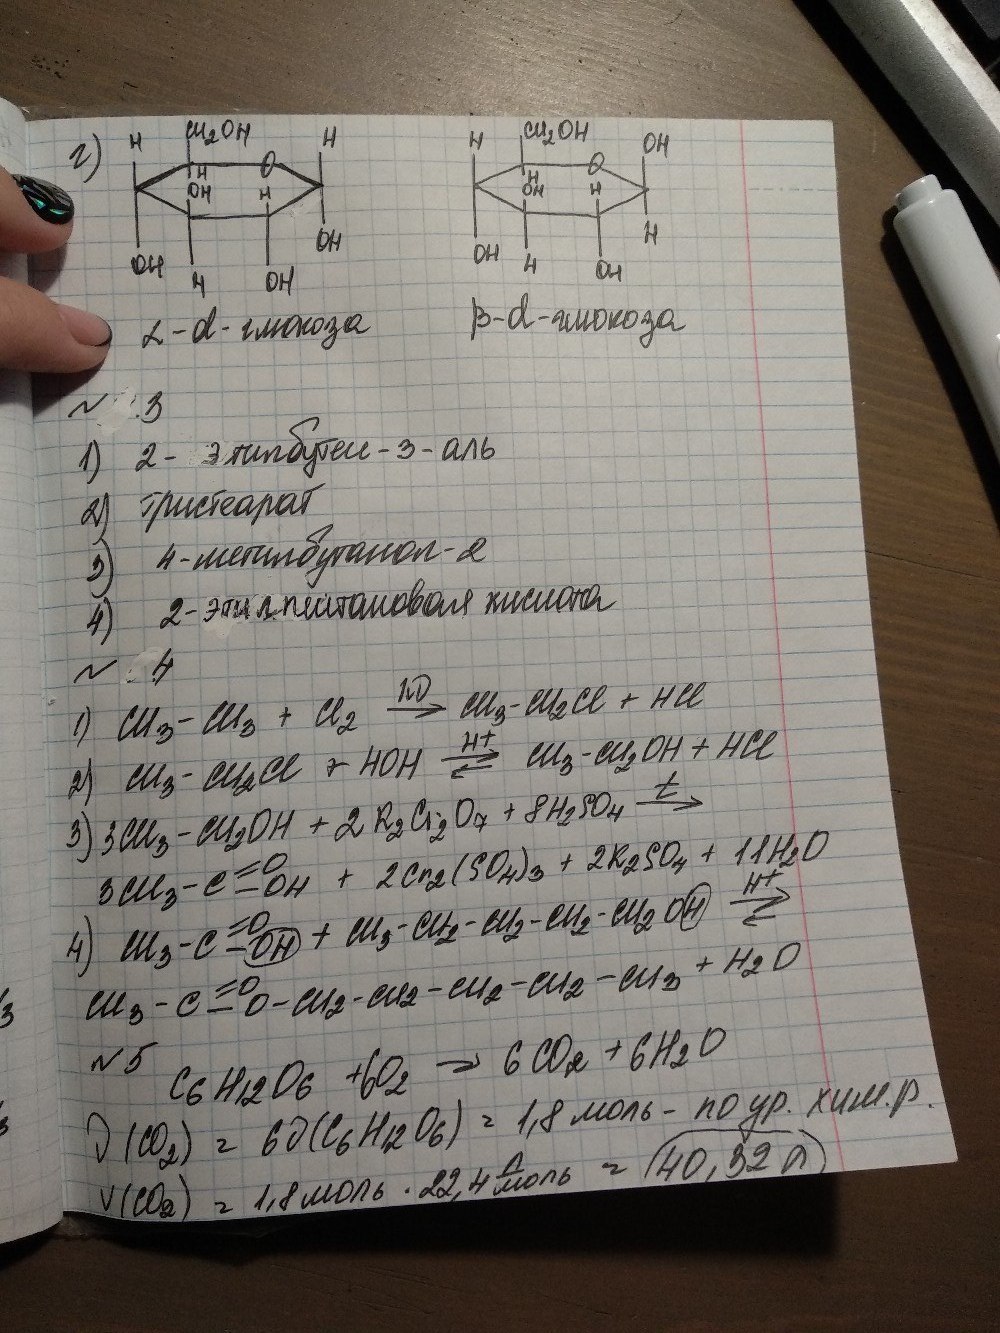 г) H CH2OH O H H OH H OH H OH OH
H CH2OH O OH H OH H OH H OH H
α-d-глюкоза β-d-глюкоза
№ 3
1) 2- этилбутен-3-аль
2) тристеарат
3) 4-метилбутанол-2
4) 2-этилпентановая кислота
№ 4
1) CH3-CH3 + Cl2 → CH3-CH2Cl + HCl
2) CH3-CH2Cl + HOH ⇌ H+ CH3-CH2OH + HCl
3) 3CH3-CH2OH + 2K2Cr2O7 + 8H2SO4 t→
3CH3-C=O-OH + 2Cr2(SO4)3 + 2K2SO4 + 11H2O
4) CH3-C=O-OH + CH3-CH2-CH2-CH2-CH2OH H+ ⇌
CH3-C=O-O-CH2-CH2-CH2-CH2-CH3 + H2O
№5 C6H12O6 +6O2 → 6CO2 +6H2O
ν(CO2) = 6ν(C6H12O6) = 1,8 моль - по ур. хим.р.
V(CO2) = 1,8 моль · 22,4 л/моль = 40,32 л